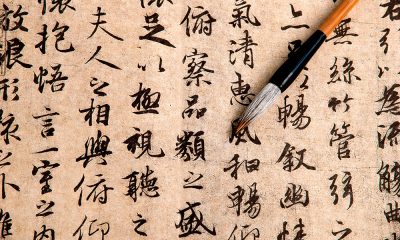 右引以為流觴曲
無絲竹管弦之
足以暢敘幽情
氣清惠風和暢仰
俯察品類之盛
懷足以極視聽之
夫人之相與俯仰
懷抱悟言一室之内
放浪形骸之外雖